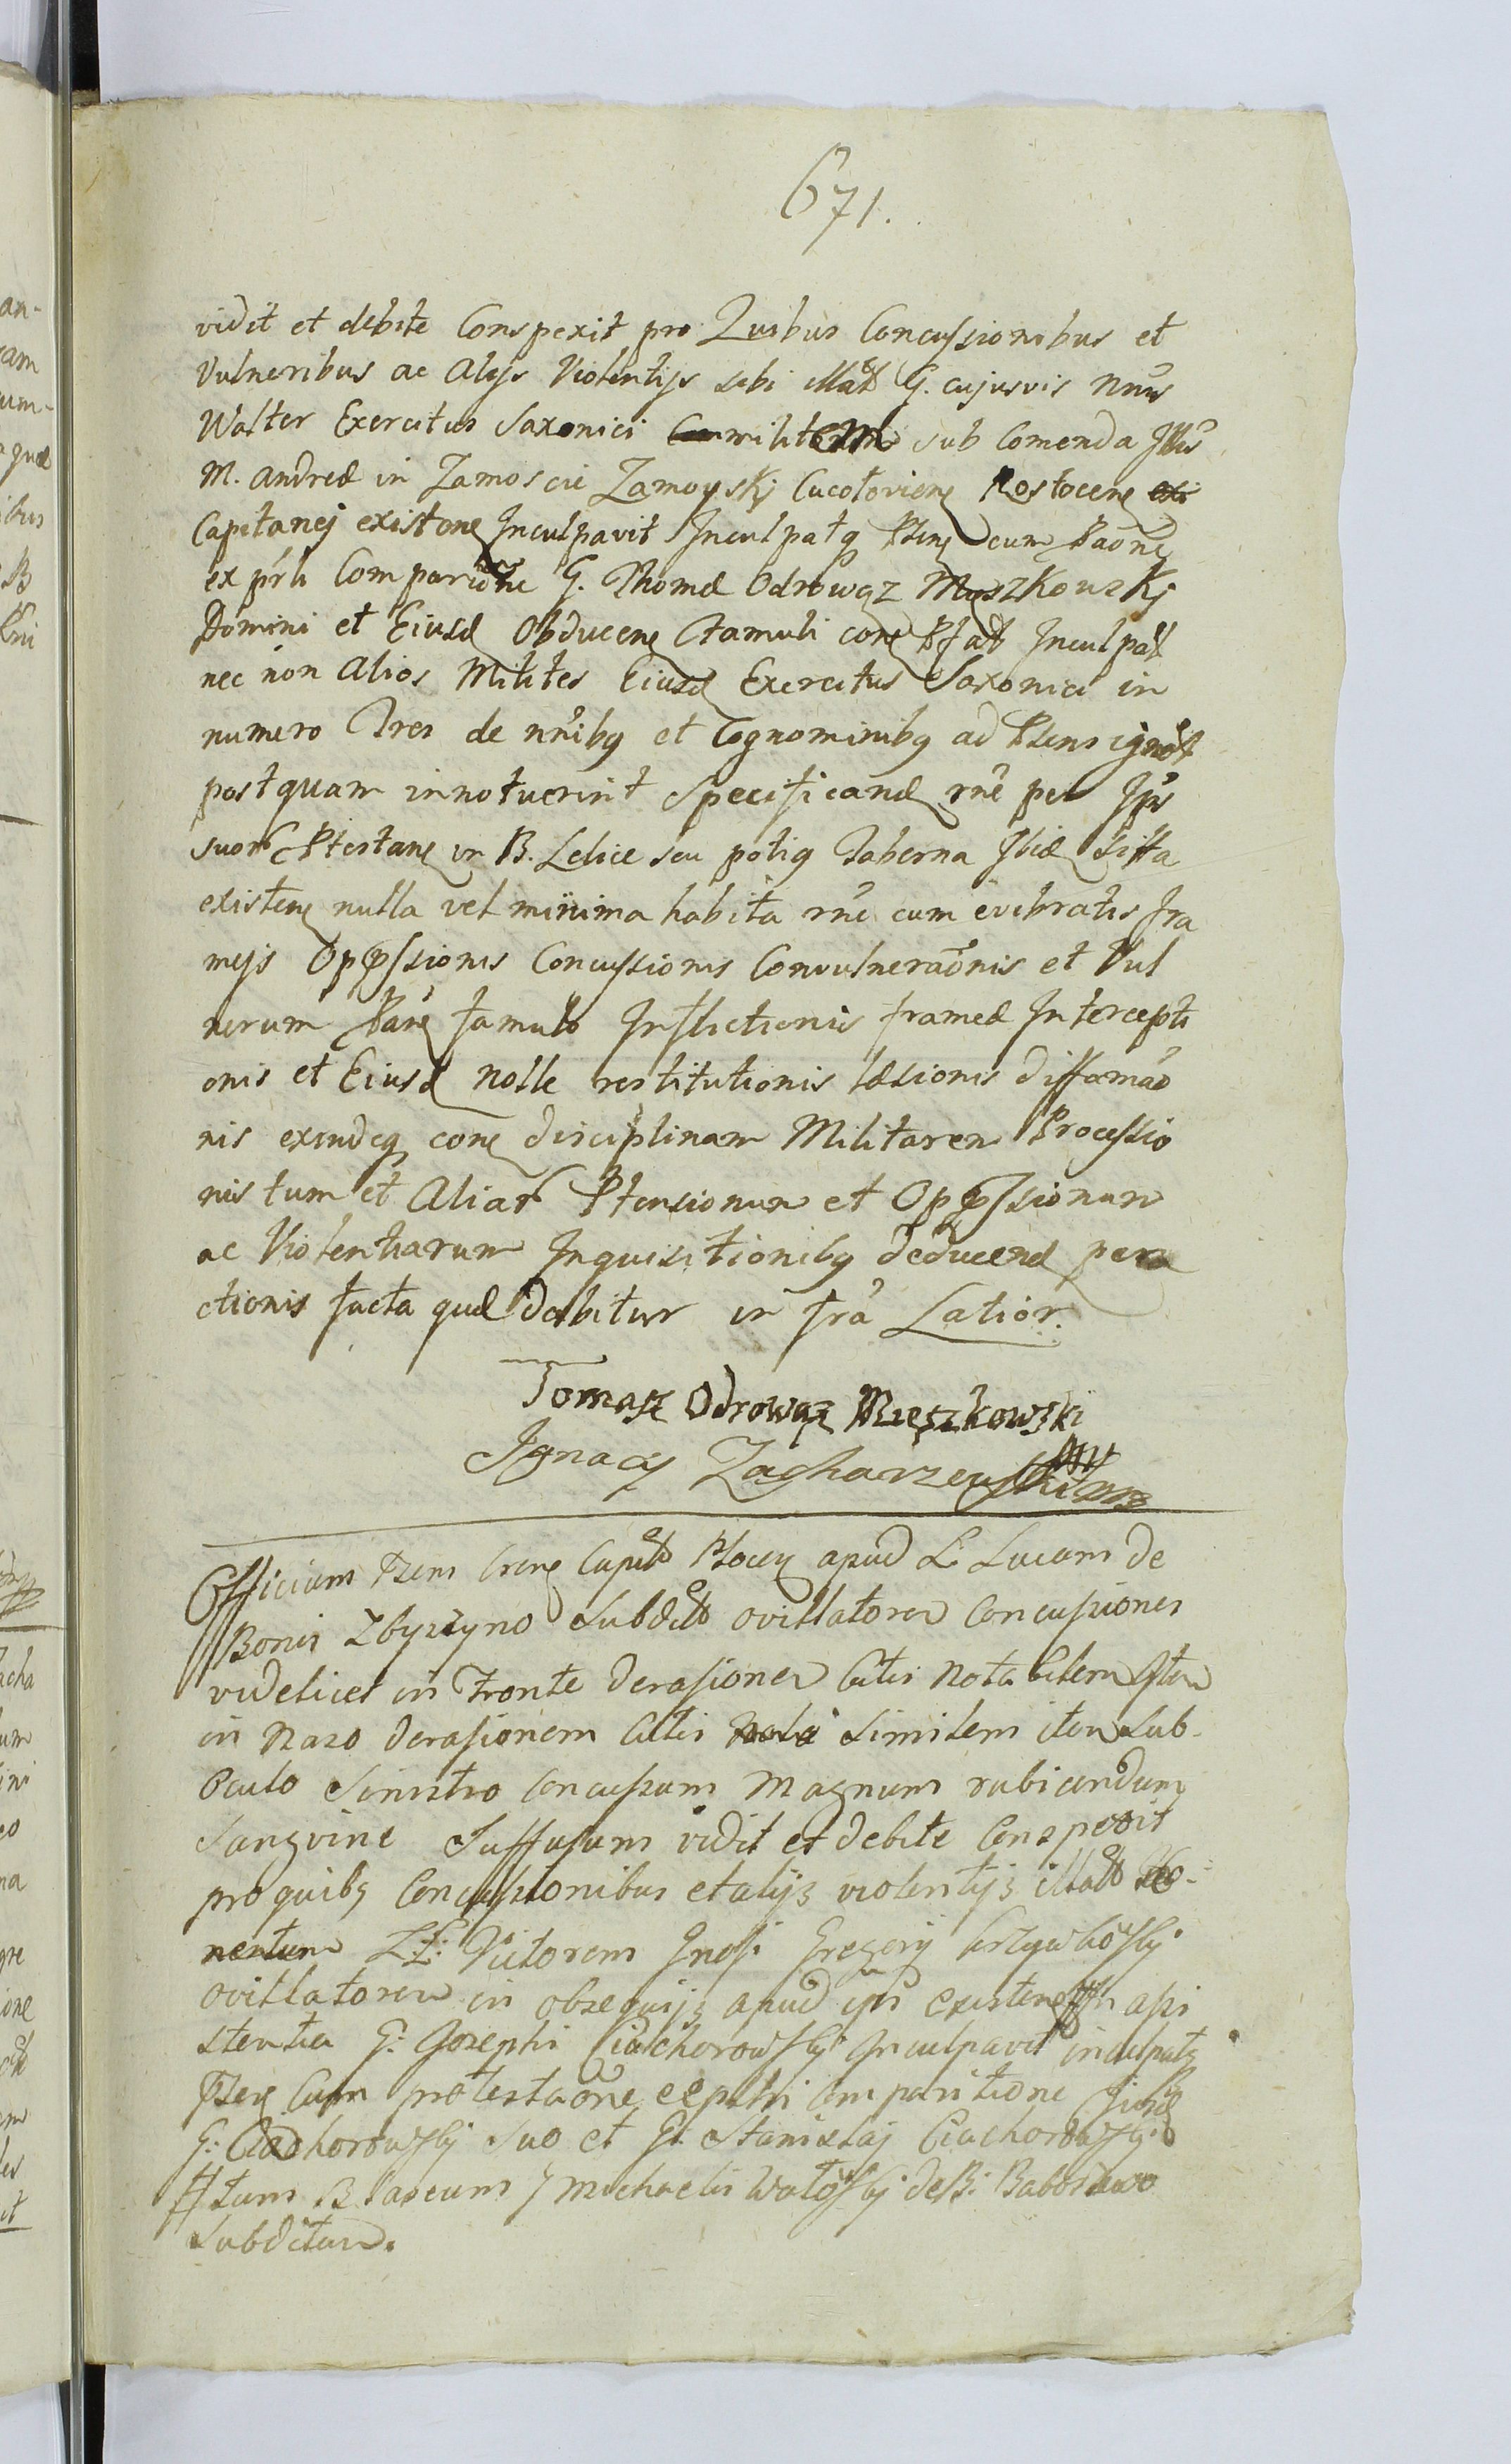 671.
vidit et debite Conspexit pro Quibus Concussionibus et
Vulneribus ac Alijs Violentijs sibi illat G. cujusvis nnis
Walter Exercitus Saxonici militem sub Comenda Illis
M. Andreæ in Zamoscie Zamoyskj Rostocen
Capitanej existen Inculpavit Inculpatq Pten cum Ptaone
ex prli Comparitione G. Thomæ Odrowąz Myszkowskj
Domini et Eiusd Obducen famuli con Ptat Inculpat
nec non Alios Milites Eiusd Exercitus Saxonici in
numero Tres de nnibq et Cognominibq ad Ptens ignot
postquam innotuerint Specificand rne per Ips
suor Ptestan in B. Lelice seu potiq Taberna Ibid sitta
existen nulla vel minima habita rne cum evibratis fra
meis Oppssionis Concussionis Convulneraonis et Vul
nerum famulo Inflictionis frameæ Intercepti
onis et Eiusd nolle restitutionis læsionis diffamao
nis exindeq con disciplinam Militarem Processio
nis tum et Aliar Ptensionum et Oppssionum
ac Violentiarum Inquisitionibq deducend per
ctionis facta quæ dabitur in frâ Latior.
Tomasz Odrowąz Mięszkowski
Ignacy Zagharzewski
Officium Pzens Cren Capit Plocen apud L. Lucam de
Bonis Zbyszyno Subdit ovillatorem Concussiones
videlicet in Fronte derasionem Cutis Notabilem Item
in Nazo derasionem Cutis similem item Sub
Oculo Sinistro Concussum Magnum rubicundum
Sangvine Suffusum vidit et debite Conspexit
pro quibq Concussionibus et alijs violentijs illat
LL. Victorem Gnosi Gregorij
ovillatorem in obsequijs apud ips existen assi
stentia G. Josephi Ciachorowskj Inculpavit inculpatq
Pzen Cum protestaone comparitione Eiusd
G. Ciachorowskj Suo et G. Stanislaj Ciachorowskj
tum Blaseum G Michaelis de B. Baboszewo
Subditum.